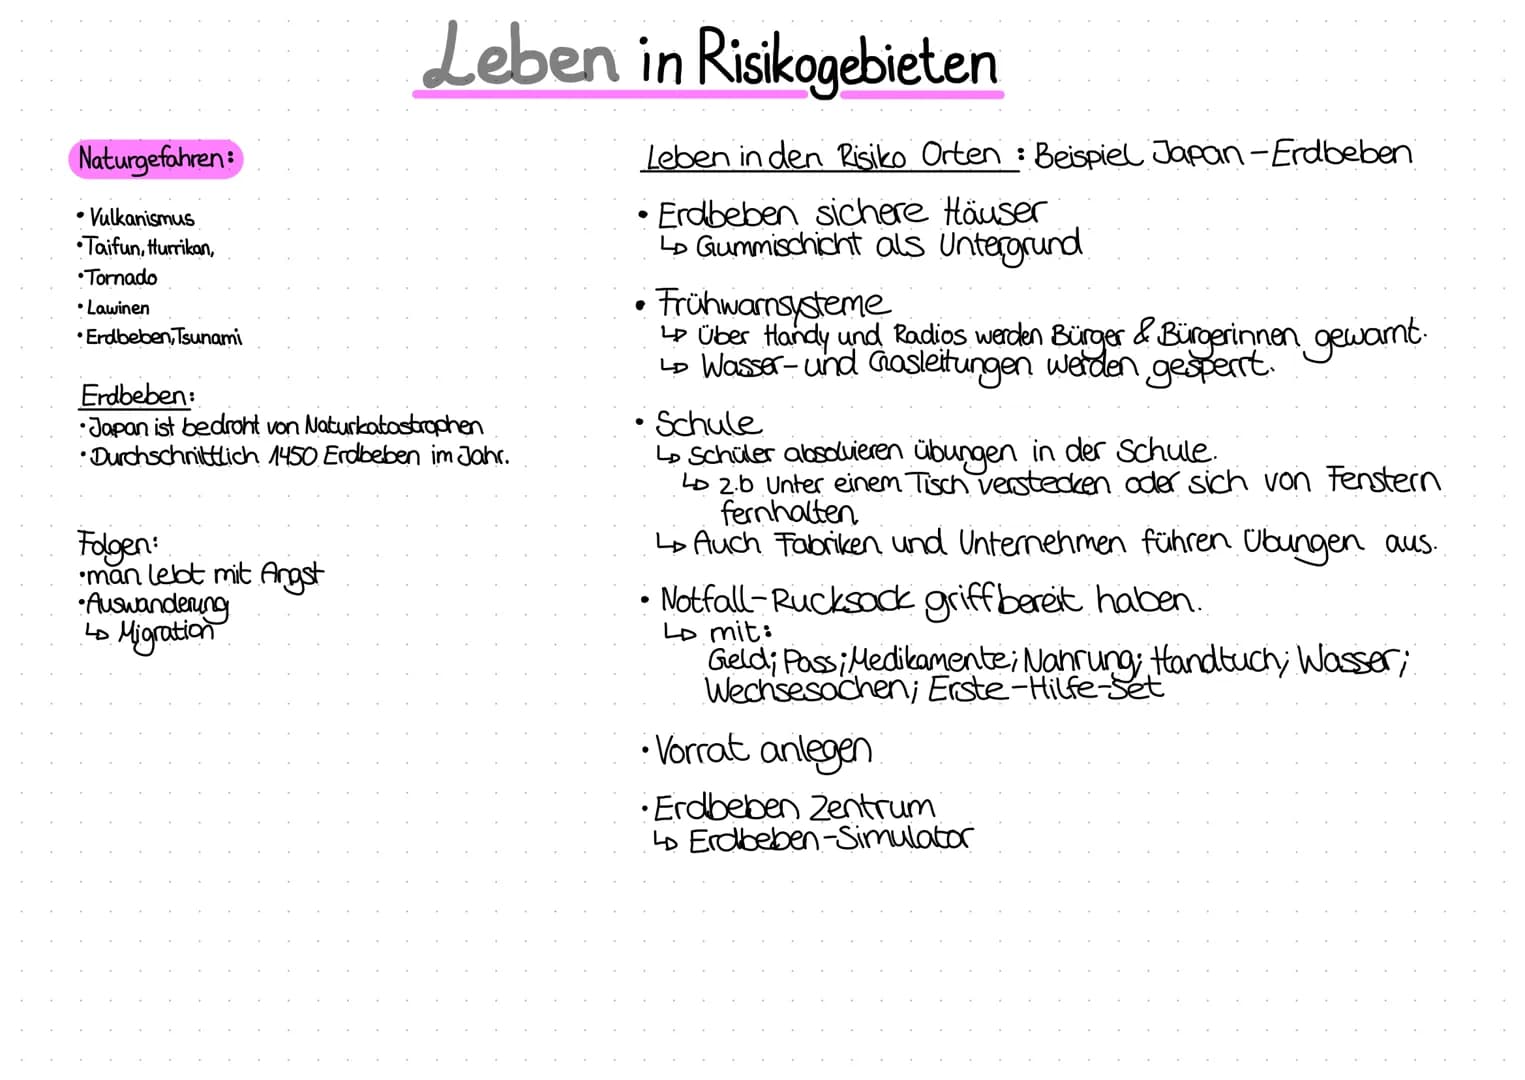 Leben in Risikogebieten
Naturgefahren:
• Vulkanismus
• Taifun, Hurrikan,
• Tornado
• Lawinen
• Erdbeben, Tsunami
Erdbeben:
• Japan ist bedroht von Naturkatastrophen
• Durchschnittlich 1450 Erdbeben im Jahr.
Folgen:
• man lebt mit Angst
• Auswanderung
↳ Migration
Leben in den Risiko Orten : Beispiel Japan - Erdbeben
• Erdbeben sichere Häuser
↳ Gummischicht als Untergrund
• Frühwarnsysteme
↳ Über Handy und Radios werden Bürger & Bürgerinnen gewarnt.
↳ Wasser- und Gasleitungen werden gesperrt.
• Schule
↳ Schüler absolvieren übungen in der Schule.
↳ z.b Unter einem Tisch verstecken oder sich von Fenstern
fernhalten
↳ Auch Fabriken und Unternehmen führen Übungen aus.
• Notfall-Rucksack griffbereit haben.
↳ mit:
Geld; Pass; Medikamente; Nahrung; Handtuch; Wasser;
Wechsesachen; Erste-Hilfe-Set
• Vorrat anlegen
• Erdbeben Zentrum
↳ Erdbeben-Simulator